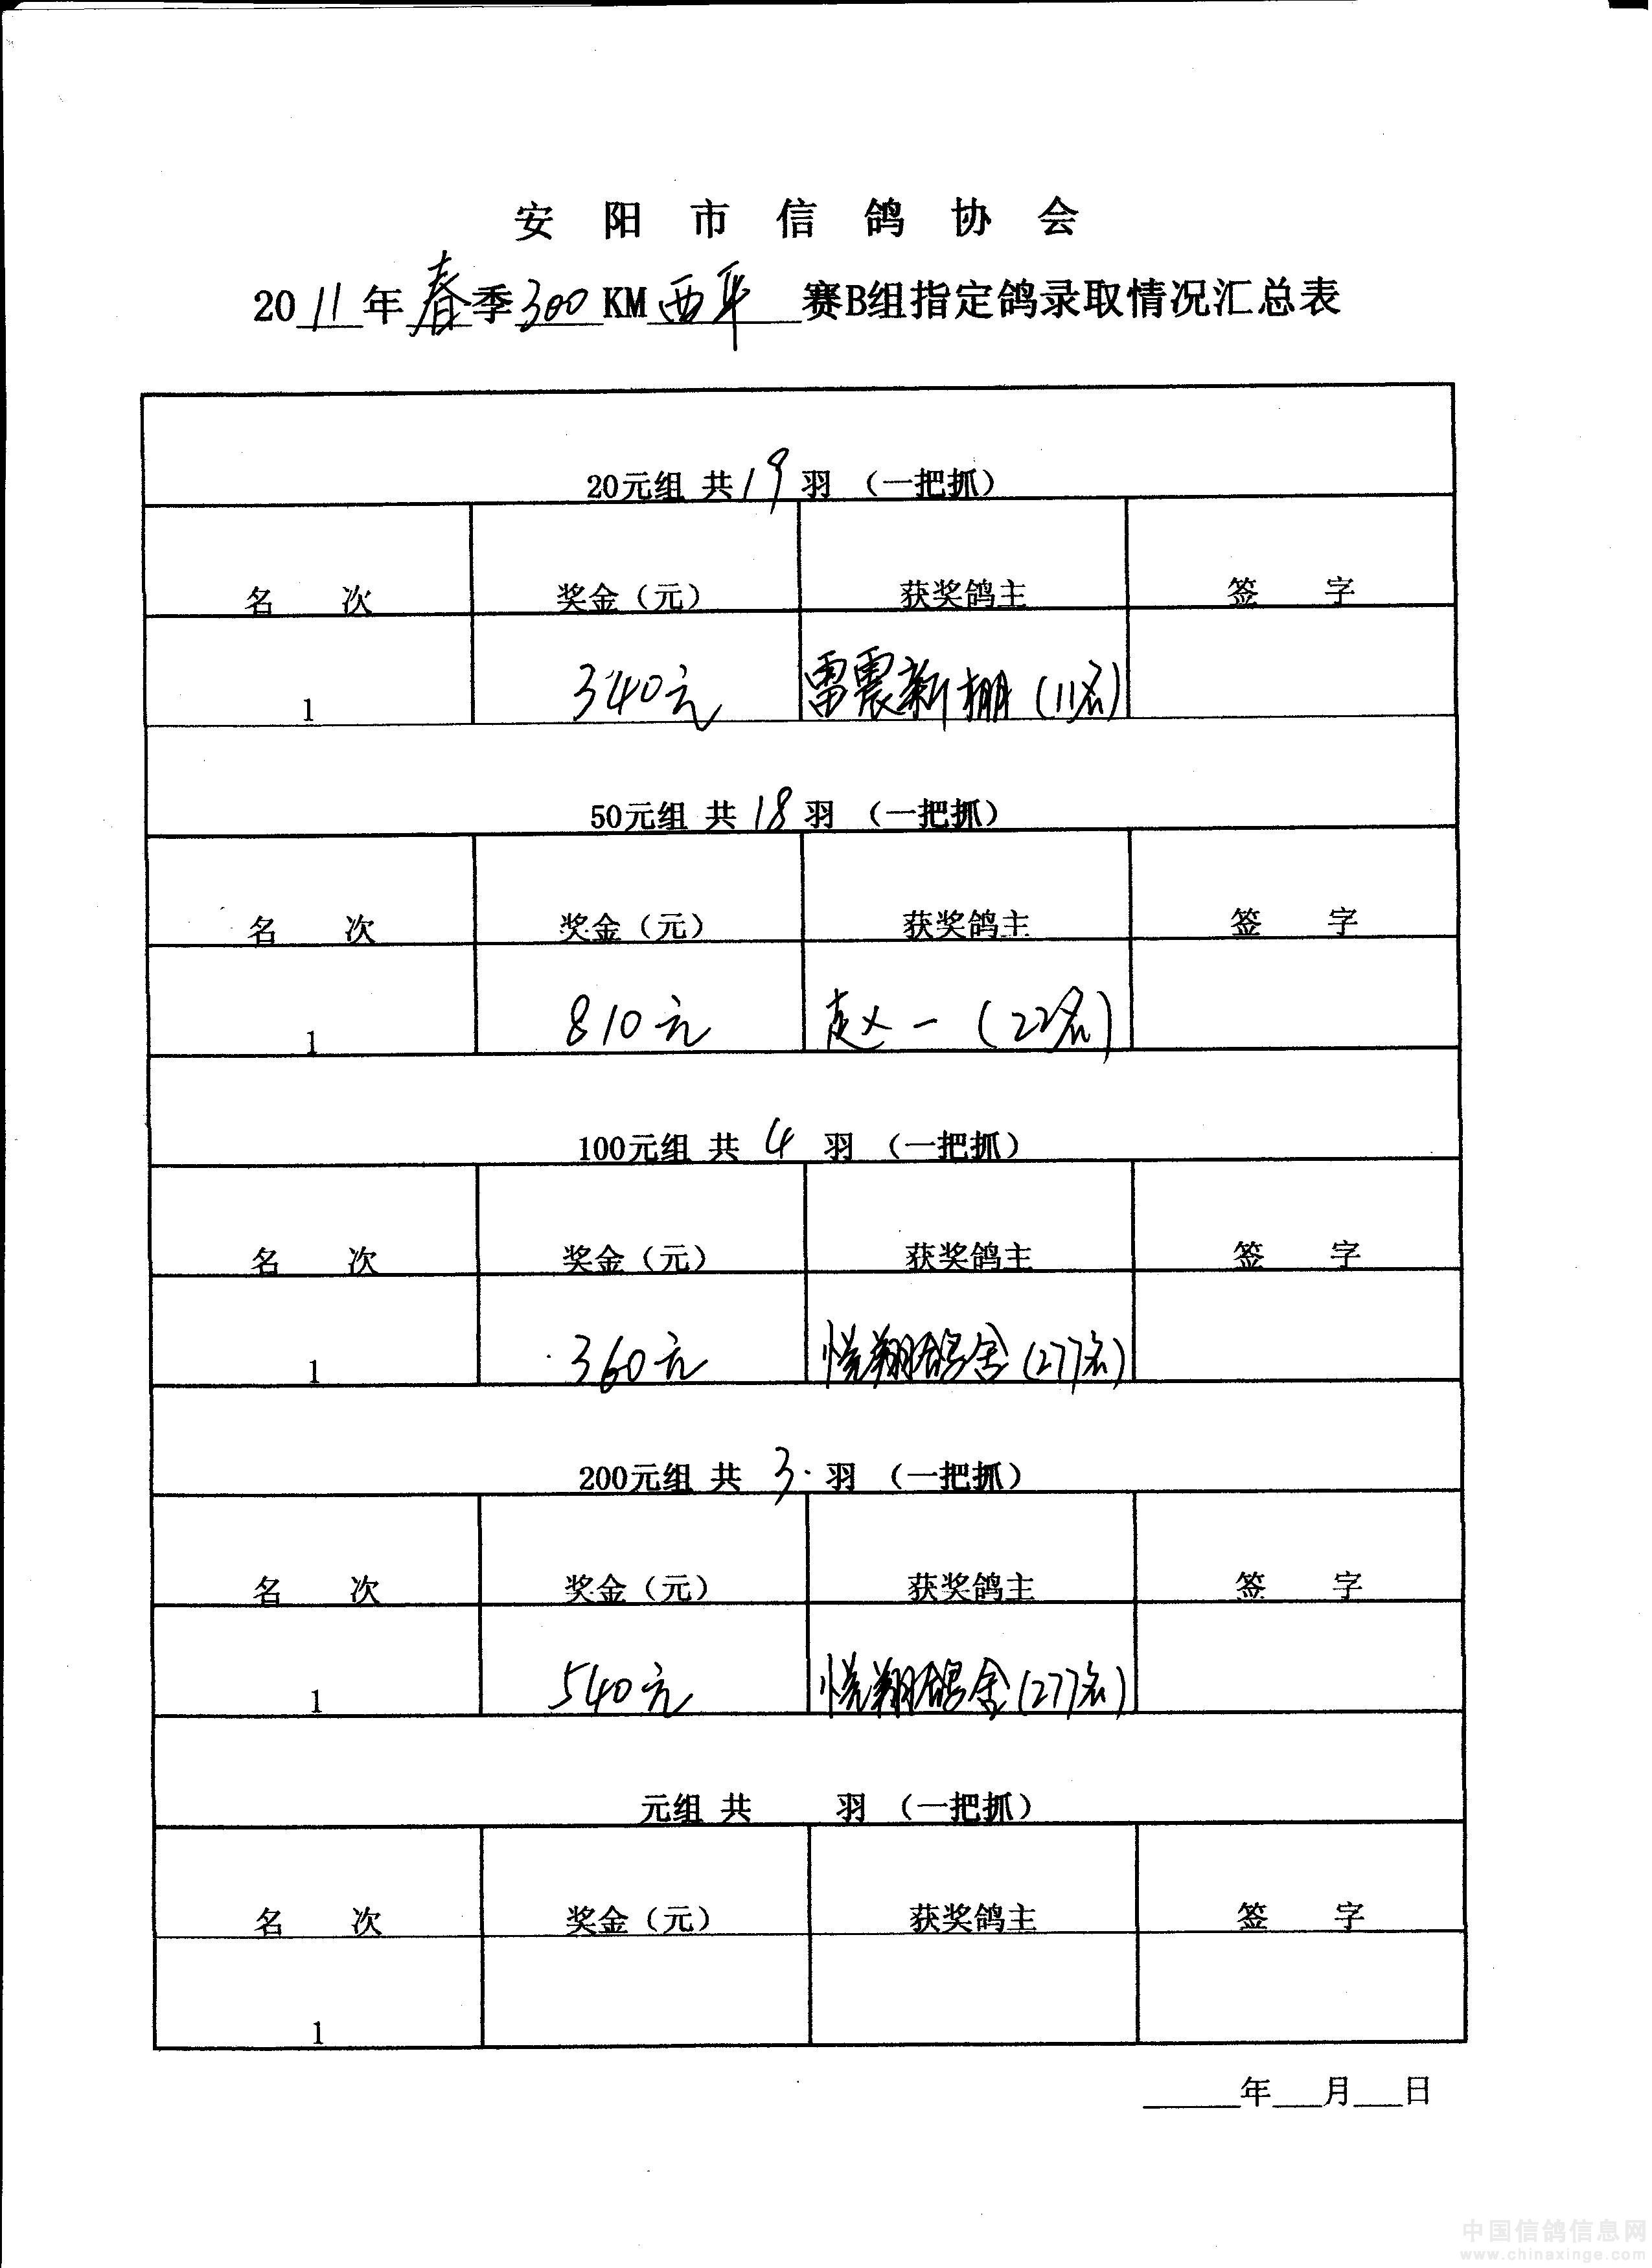 安阳市信鸽协会
2011年春季300KM西平赛B组指定鸽录取情况汇总表
20元组 共19羽 （一把抓）
名 次 奖金（元） 获奖鸽主 签 字
1 340元 雷震新棚（11名）
50元组 共18羽 （一把抓）
名 次 奖金（元） 获奖鸽主 签 字
1 810元 赵一（22名）
100元组 共4羽 （一把抓）
名 次 奖金（元） 获奖鸽主 签 字
1 360元 悦翔鸽舍（277名）
200元组 共3羽 （一把抓）
名 次 奖金（元） 获奖鸽主 签 字
1 540元 悦翔鸽舍（277名）
元组 共 羽 （一把抓）
名 次 奖金（元） 获奖鸽主 签 字
1
年 月 日
中国信鸽信息网
www.chinaxinge.com